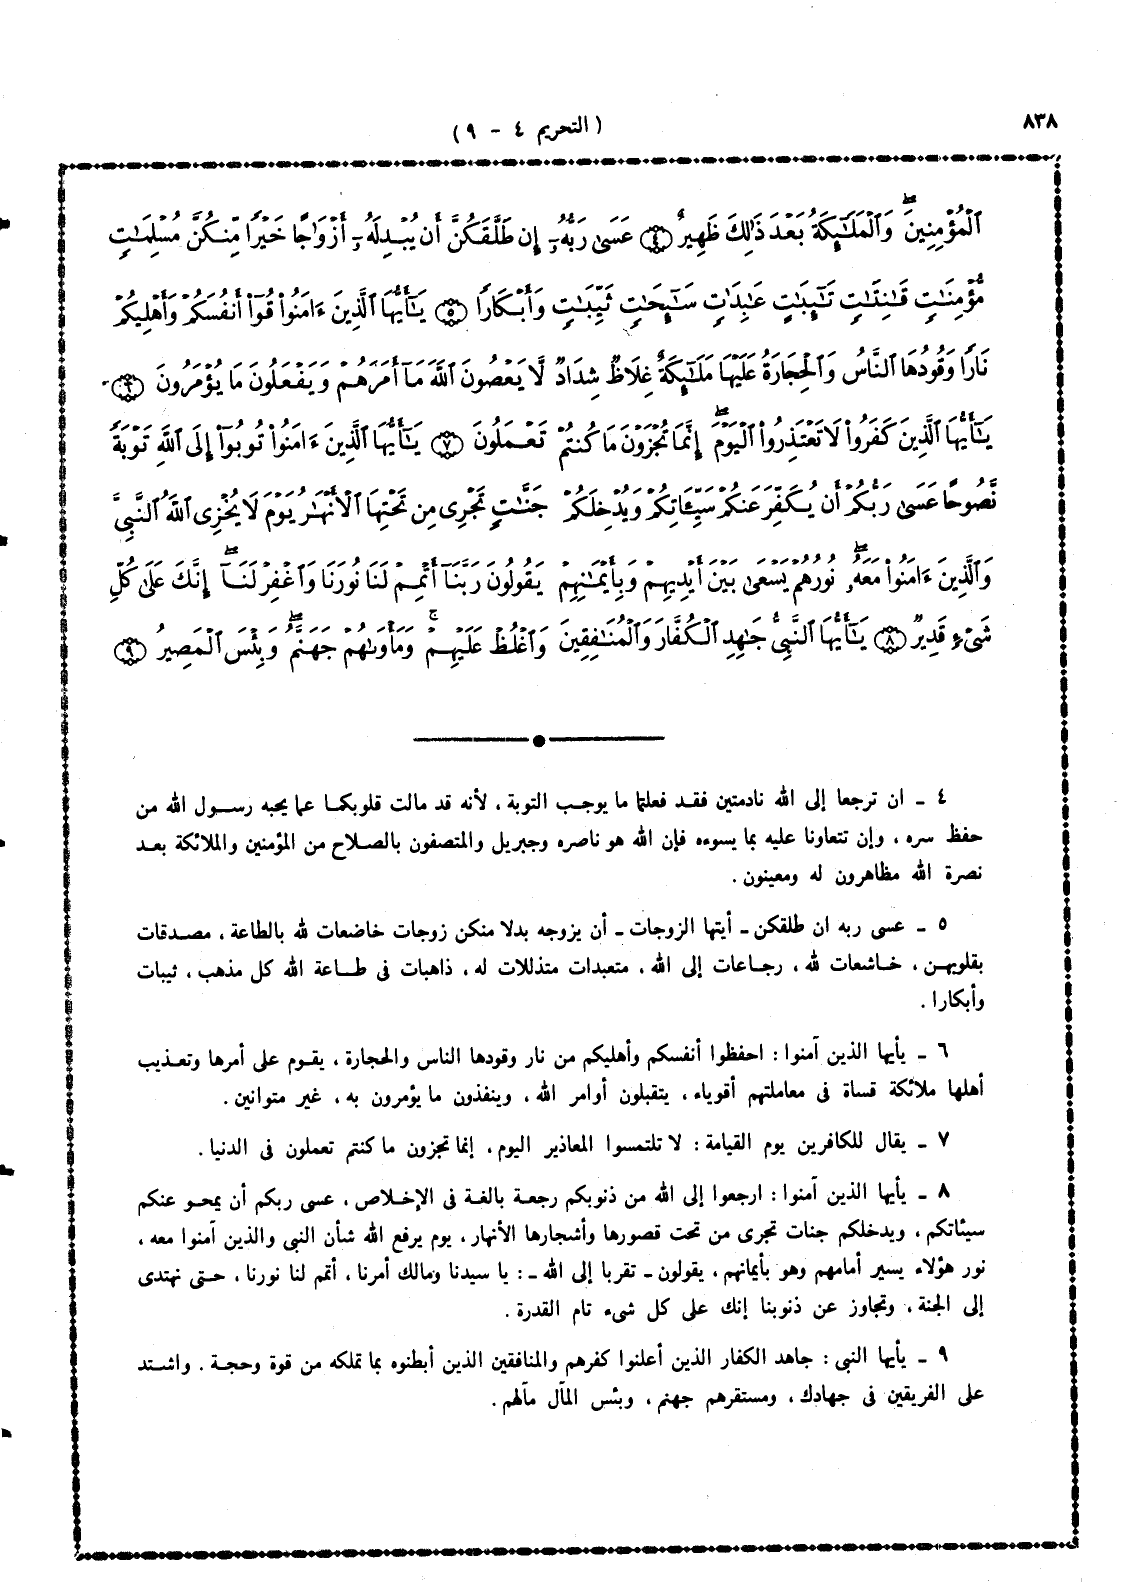 ٨٣٨
( التحريم ٤ - ٩ )
ٱلْمُؤْمِنِينَ ۖ وَٱلْمَلَٰٓئِكَةُ بَعْدَ ذَٰلِكَ ظَهِيرٌ ٤ عَسَىٰ رَبُّهُۥٓ إِن طَلَّقَكُنَّ أَن يُبْدِلَهُۥٓ أَزْوَٰجًا خَيْرًا مِّنكُنَّ مُسْلِمَٰتٍ
مُّؤْمِنَٰتٍ قَٰنِتَٰتٍ تَٰٓئِبَٰتٍ عَٰبِدَٰتٍ سَٰٓئِحَٰتٍ ثَيِّبَٰتٍ وَأَبْكَارًا ٥ يَٰٓأَيُّهَا ٱلَّذِينَ ءَامَنُوا۟ قُوٓا۟ أَنفُسَكُمْ وَأَهْلِيكُمْ
نَارًا وَقُودُهَا ٱلنَّاسُ وَٱلْحِجَارَةُ عَلَيْهَا مَلَٰٓئِكَةٌ غِلَاظٌ شِدَادٌ لَّا يَعْصُونَ ٱللَّهَ مَآ أَمَرَهُمْ وَيَفْعَلُونَ مَا يُؤْمَرُونَ ٦
يَٰٓأَيُّهَا ٱلَّذِينَ كَفَرُوا۟ لَا تَعْتَذِرُوا۟ ٱلْيَوْمَ ۖ إِنَّمَا تُجْزَوْنَ مَا كُنتُمْ تَعْمَلُونَ ٧ يَٰٓأَيُّهَا ٱلَّذِينَ ءَامَنُوا۟ تُوبُوٓا۟ إِلَى ٱللَّهِ تَوْبَةً
نَّصُوحًا عَسَىٰ رَبُّكُمْ أَن يُكَفِّرَ عَنكُمْ سَيِّـَٔاتِكُمْ وَيُدْخِلَكُمْ جَنَّٰتٍ تَجْرِى مِن تَحْتِهَا ٱلْأَنْهَٰرُ يَوْمَ لَا يُخْزِى ٱللَّهُ ٱلنَّبِىَّ
وَٱلَّذِينَ ءَامَنُوا۟ مَعَهُۥ ۖ نُورُهُمْ يَسْعَىٰ بَيْنَ أَيْدِيهِمْ وَبِأَيْمَٰنِهِمْ يَقُولُونَ رَبَّنَآ أَتْمِمْ لَنَا نُورَنَا وَٱغْفِرْ لَنَآ ۖ إِنَّكَ عَلَىٰ كُلِّ
شَىْءٍ قَدِيرٌ ٨ يَٰٓأَيُّهَا ٱلنَّبِىُّ جَٰهِدِ ٱلْكُفَّارَ وَٱلْمُنَٰفِقِينَ وَٱغْلُظْ عَلَيْهِمْ ۚ وَمَأْوَىٰهُمْ جَهَنَّمُ ۖ وَبِئْسَ ٱلْمَصِيرُ ٩
٤ ـ ان ترجعا إلى الله نادمتين فقد فعلتما ما يوجب التوبة ، لأنه قد مالت قلوبكما عما يحبه رسول الله من
حفظ سره ، وإن تتعاونا عليه بما يسوءه فإن الله هو ناصره وجبريل والمتصفون بالصلاح من المؤمنين والملائكة بعد
نصرة الله مظاهرون له ومعينون .
٥ ـ عسى ربه ان طلقكن ـ أيتها الزوجات ـ أن يزوجه بدلا منكن زوجات خاضعات لله بالطاعة ، مصدقات
بقلوبهن ، خاشعات لله ، رجاعات إلى الله ، متعبدات متذللات له ، ذاهبات فى طاعة الله كل مذهب ، ثيبات
وأبكارا .
٦ ـ يأيها الذين آمنوا : احفظوا أنفسكم وأهليكم من نار وقودها الناس والحجارة ، يقوم على أمرها وتعذيب
أهلها ملائكة قساة فى معاملتهم أقوياء ، يتقبلون أوامر الله ، وينفذون ما يؤمرون به ، غير متوانين .
٧ ـ يقال للكافرين يوم القيامة : لا تلتمسوا المعاذير اليوم ، إنما تجزون ما كنتم تعملون فى الدنيا .
٨ ـ يأيها الذين آمنوا : ارجعوا إلى الله من ذنوبكم رجعة بالغة فى الإخلاص ، عسى ربكم أن يمحو عنكم
سيئاتكم ، ويدخلكم جنات تجرى من تحت قصورها وأشجارها الأنهار ، يوم يرفع الله شأن النبى والذين آمنوا معه ،
نور هؤلاء يسير أمامهم وهو بأيمانهم ، يقولون ـ تقربا إلى الله ـ : يا سيدنا ومالك أمرنا ، أتمم لنا نورنا ، حتى نهتدى
إلى الجنة ، وتجاوز عن ذنوبنا إنك على كل شىء تام القدرة .
٩ ـ يأيها النبى : جاهد الكفار الذين أعلنوا كفرهم والمنافقين الذين أبطنوه بما تملكه من قوة وحجة . واشتد
على الفريقين فى جهادك ، ومستقرهم جهنم ، وبئس المآل مآلهم .